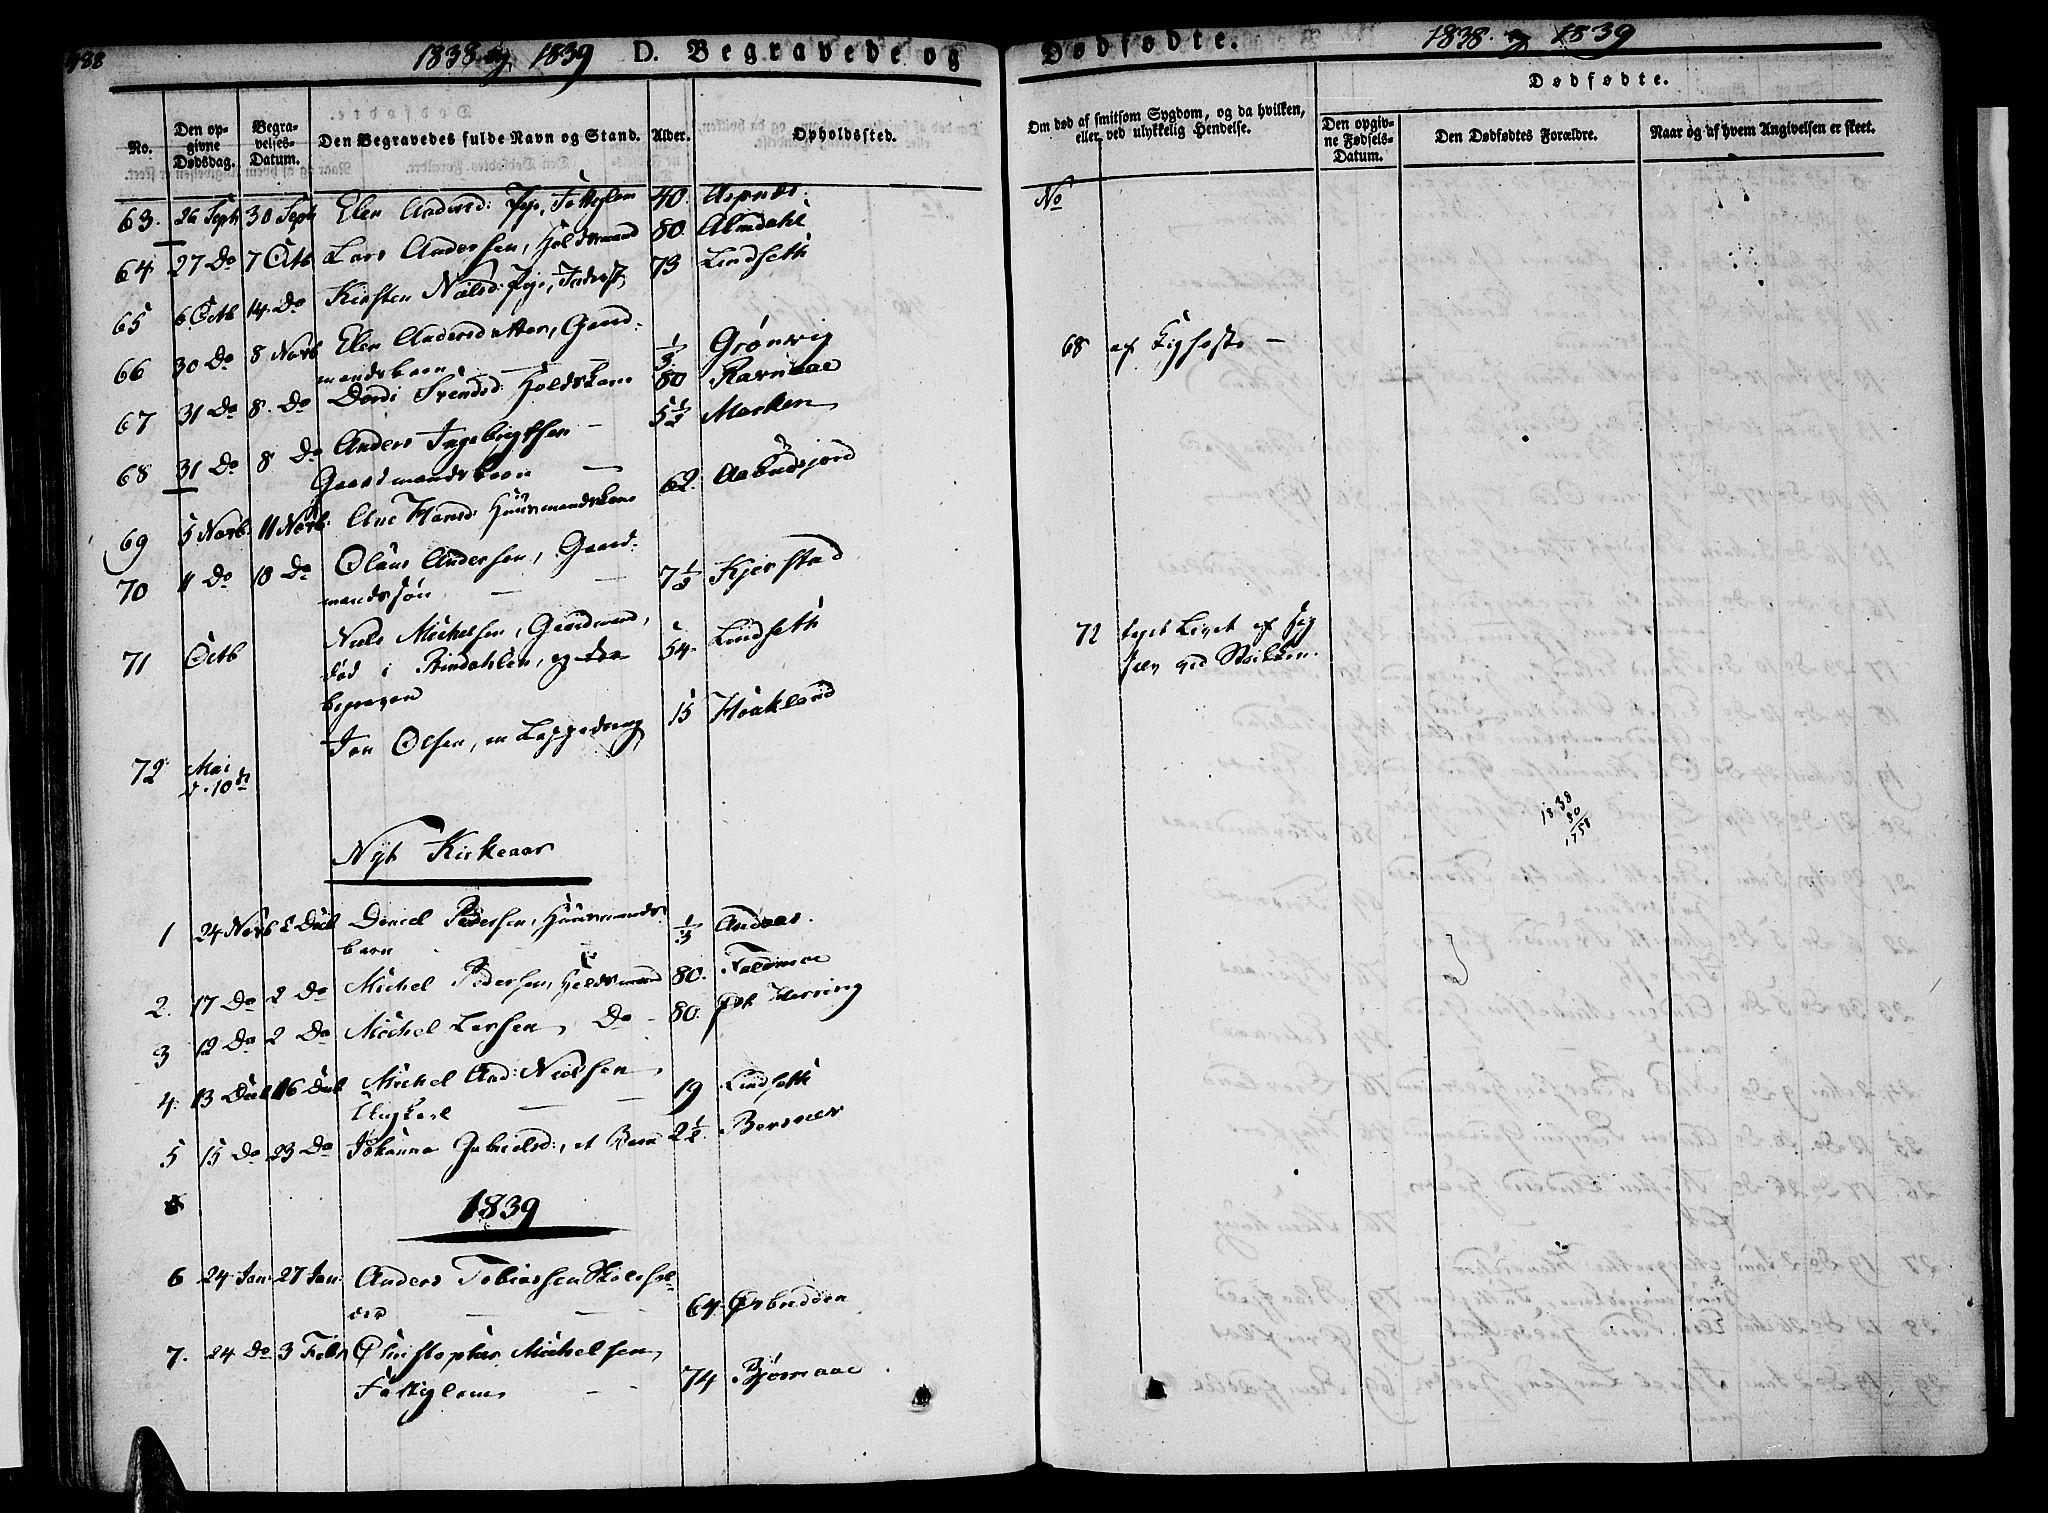 188
1838 og 1839 D. Begravede og
No.
Den op-
givne
Dødsdag.
Begra-
velses-
Datum.
Den Begravedes fulde Navn og Stand.
Alder.
Opholdssted.
63. 26 Septr 30 Septr Elen Andersd: Pige, Fattiglem 40.
64 27 Do 7 Octb Lars Andersen, Holdsmand 80. Almdahl
65 6 Octb 14 Do Kirsten Nilsd: Pige, Inderst 73 Lindseth
66 30 Do 8 Novb Elen Andersdatter, Gaard-
mandsbarn 1/3 Grønvig
67 31 Do 8 Do Dordi Svendsd: Holdskone 80 Ravnaae
68 31 Do 8 Do Anders Ingebrigtsen 5 1/2 Marken
Gaardmandsbarn
69 5 Novb. 11 Novb. Ane Hansd: Huusmandskone 62.
70 11 Do 18 Do Olaus Andersen, Gaard-
mandssøn 7 1/2 Kjerstad
71 Octb Niels Michelsen, Gaardmand, 54. Lindseth
død i Bindahlen, og der
begraven
72 Mai d. 10de Jon Olsen, en Lappedreng 15
Nyt Kirkeaar
1 24 Novb 2 Decb Daniel Pedersen, Huusmands-
barn 1/3
2. 17 Do 2 Do Michel Pedersen, Holdsmand 80.
3 12 Do 2 Do Michel Larsen, Do 80.
4. 13 Decb 16 Decb Michel And: Nielsen, 19 Lindseth
Ungkarl
5 15 Do 23 Do Johanna Gabrielsd:, et Barn 2 1/2.
1839
6 24 Jan: 27 Jan: Anders Tobiassen
64.
7. 24 Do 3 Febr Christopher Michelsen,
Fattiglem 74 Bjørnaae
Dødfødte. 1838. og 1839
Om død af smitsom Sygdom, og da hvilken,
eller ved ulykkelig Hendelse.
Dødfødte.
Den opgiv-
ne Fødsels-
Datum.
Den Dødfødtes Forældre.
Naar og af hvem Angivelsen er skeet.
No
68 af Kighoste
72 taget Livet af sig
selv ved
1838
80
1758